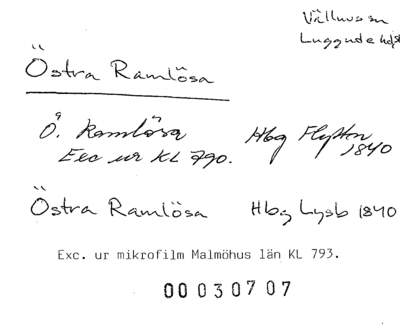 Välluvs sn
Luggude hd
Östra Ramlösa
Ö. Ramlösa Hbg Flyttn 1840
Exc ur KL 790.
Östra Ramlösa Hbg Lysb 1840
Exc. ur mikrofilm Malmöhus län KL 793.
00 030707